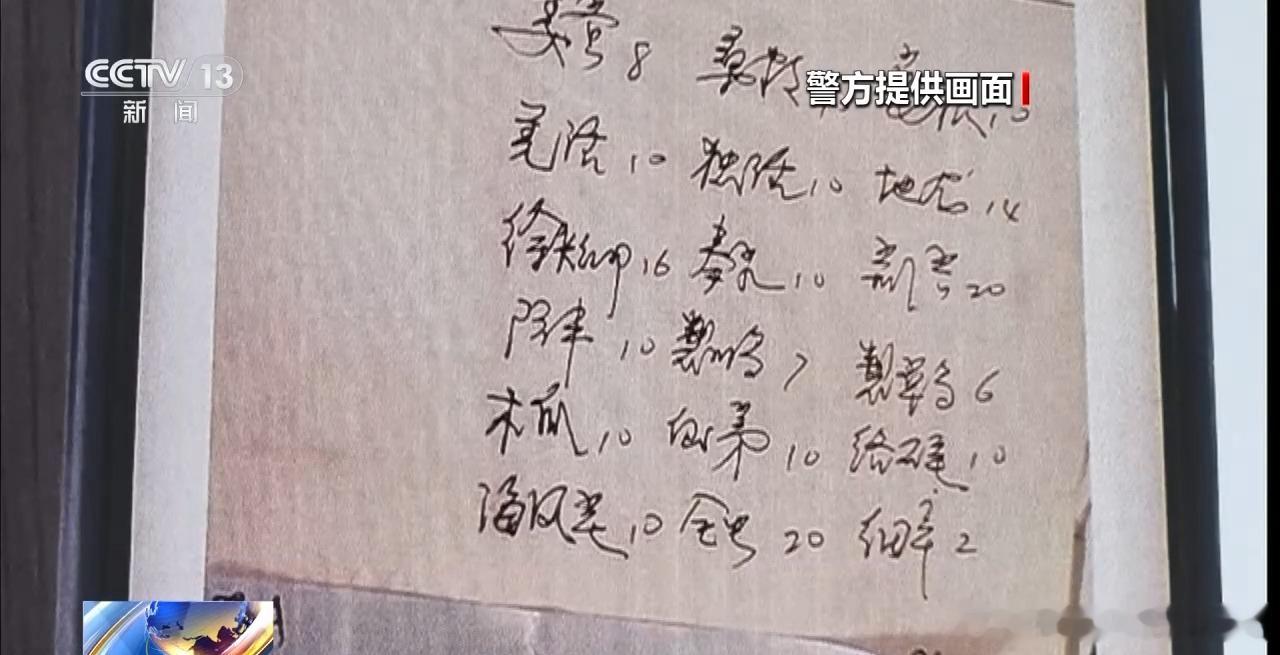 CCTV 13
新闻
警方提供画面
姜黄 8
羌活 10 独活 10 地龙 14
徐长卿 16 秦艽 10 20
防风 10 制川乌 7 制草乌 6
木瓜 10 10 络石藤 10
海风藤 10 全虫 20 细辛 2